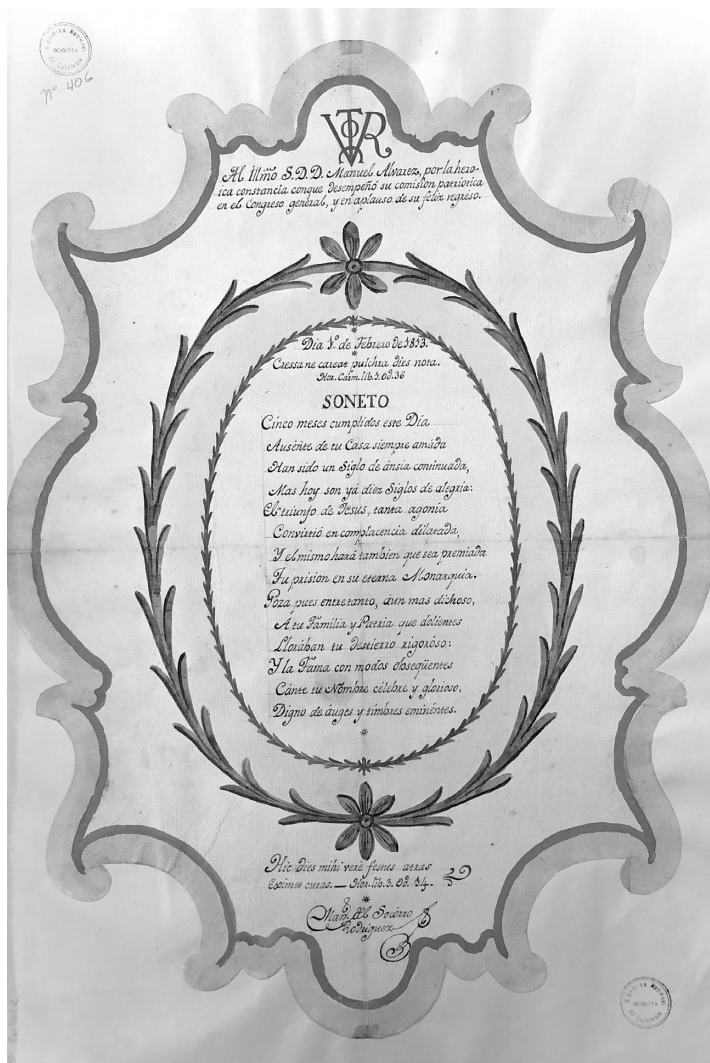 Biblioteca Nacional
BOGOTA
de Colombia
Nº 406
VTOR
Al Illmõ S.D.D. Manuel Alvarez, por la hero-
ica constancia conque desempeñó su comision patriotica
en el Congreso general, y en aplauso de su feliz regreso.
Dia 1º de Febrero de 1813.
Cressa ne careat pulchra dies nota.
Hor. Carm. lib. 1. Od. 36
SONETO
Cinco meses cumplidos este Día
Ausénte de tu Casa siempre amáda
Han sido un Siglo de ánsia continuada,
Mas hoy son yá diez Siglos de alegría:
El triunfo de Jesus, tanta agonía
Convirtió en complacencia dilatada,
Y el mismo hará tambien que sea premiada
Tu prision en su eterna Monarquía.
Goza pues entretanto, áun mas dichoso,
A tu Familia y Patria que dolientes
Llorában tu destierro rigoróso:
Y la Fama con modos obseqüentes
Cánte tu Nombre célebre y glorioso,
Digno de áuges y timbres eminéntes.
Hic dies mihi veré festus atras
Eximet curas. — Hor. lib. 3. Od. 14.
Man. del Socorro
Rodriguez
Biblioteca Nacional
BOGOTA
de Colombia